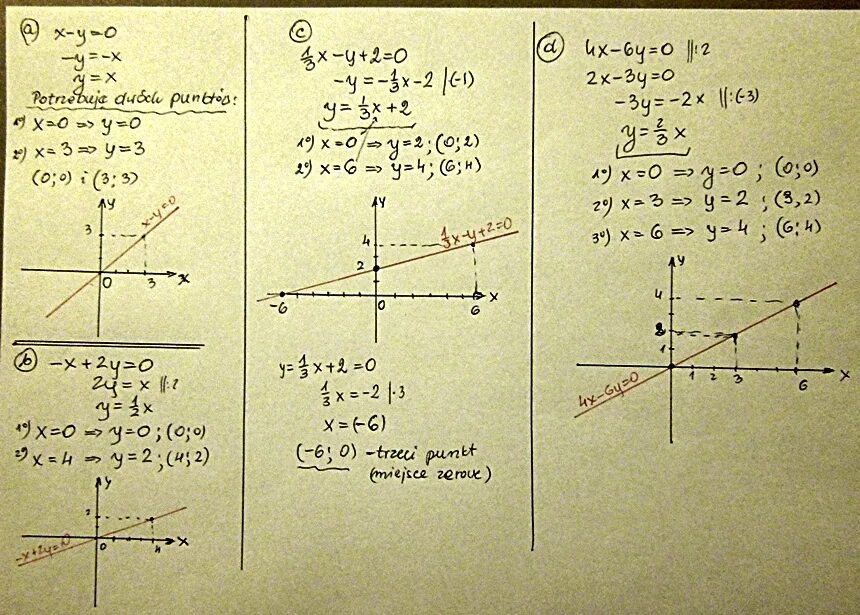 a) x-y=0
-y=-x
y=x
Potrzebuję dwóch punktów:
1°) x=0 ⇒ y=0
2°) x=3 ⇒ y=3
(0;0) i (3;3)
y
3
x-y=0
0
3
x
b) -x+2y=0
2y=x ||:2
y=½x
1°) x=0 ⇒ y=0; (0;0)
2°) x=4 ⇒ y=2; (4;2)
y
2
-x+2y=0
0
4
x
c)
⅓x-y+2=0
-y=-⅓x-2 |(-1)
y=⅓x+2
1°) x=0 ⇒ y=2; (0;2)
2°) x=6 ⇒ y=4; (6;4)
y
4
⅓x-y+2=0
2
-6
0
6
x
y=⅓x+2=0
⅓x=-2 |·3
x=(-6)
(-6; 0) - trzeci punkt
(miejsce zerowe)
d) 4x-6y=0 ||:2
2x-3y=0
-3y=-2x ||:(-3)
y=⅔x
1°) x=0 ⇒ y=0; (0;0)
2°) x=3 ⇒ y=2; (3,2)
3°) x=6 ⇒ y=4; (6;4)
y
4
2
1
4x-6y=0
1 2 3
6
x